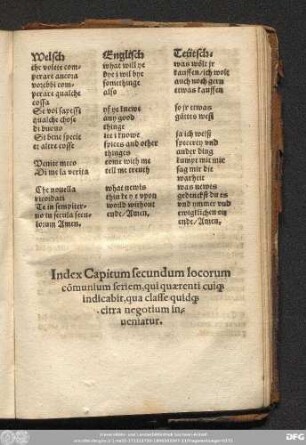 Welsch
che volete com-
perare ancora
vorebbi com-
perare qualche
cossa
Se voi sapessi
qualche chose
di buono
Si bene specie
et altre cosse
Venite meco
Di me la verita
Che novella
Te in sempiter-
no in secula secu-
lorum Amen,
Englisch
what will ye
bye i wil bye
somethinge
also
of ye knewe
any good
thinge
ite i knowe
spices and other
thinges
come with me
tell me treuth
what newis
thin ke ye upon
world without
ende/Amen,
Teütsch
was wölt jr
kauffen/ich wolt
auch noch gern
etwas kauffen
so jr etwas
güttes weißt
ja ich weiß
specerey vnd
ander ding
kumpt mit mir
sag mir die
warheit
was newes
gedenckst du es
vnd ymmer vnd
ewigklichen on
ende/Amen,
Index Capitum secundum locorum
cōmunium seriem, qui quærenti cuiq;
indicabit, qua classe quidq;
citra negotium in-
ueniatur.